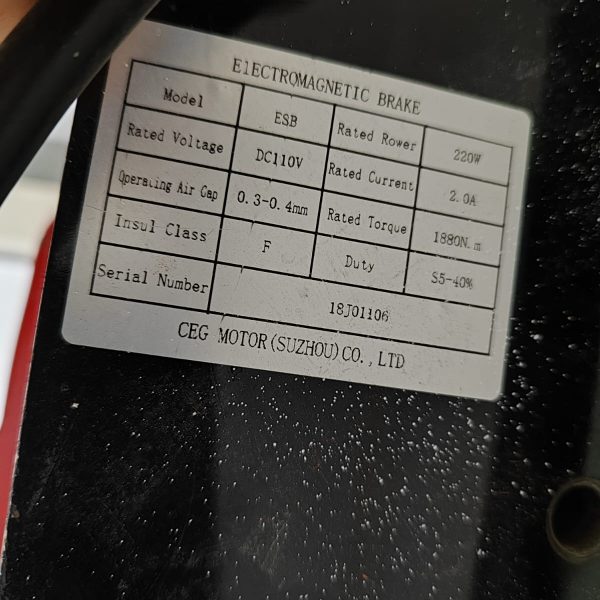 ElECTROMAGNETIC BRAKE
Model ESB Rated Rower 220W
Rated Voltage DC110V Rated Current 2.0A
Operating Air Gap 0.3-0.4mm Rated Torque 1880N.m
Insul Class F Duty S5-40%
Serial Number 18J01106
CEG MOTOR(SUZHOU)CO.,LTD